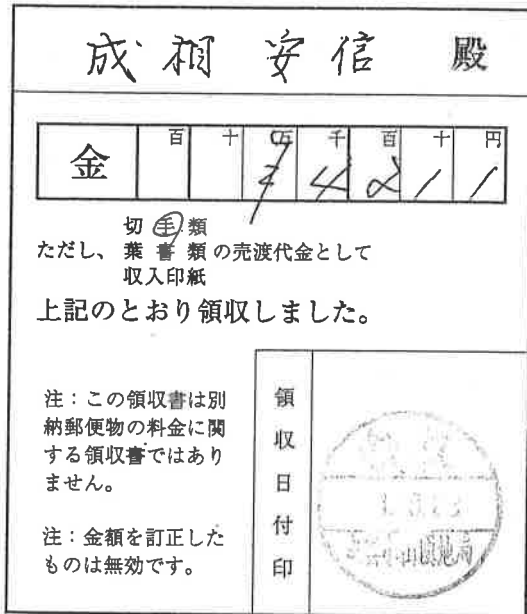 成相 安信 殿
金 百 十 万 千 百 十 円
4 2 1 1
切手類
ただし、 葉書類の売渡代金として
収入印紙
上記のとおり領収しました。
注：この領収書は別
納郵便物の料金に関
する領収書ではあり
ません。
注：金額を訂正した
ものは無効です。
領収日付印